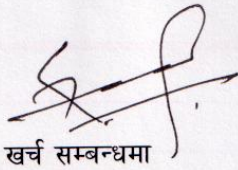 खर्च सम्बन्धमा